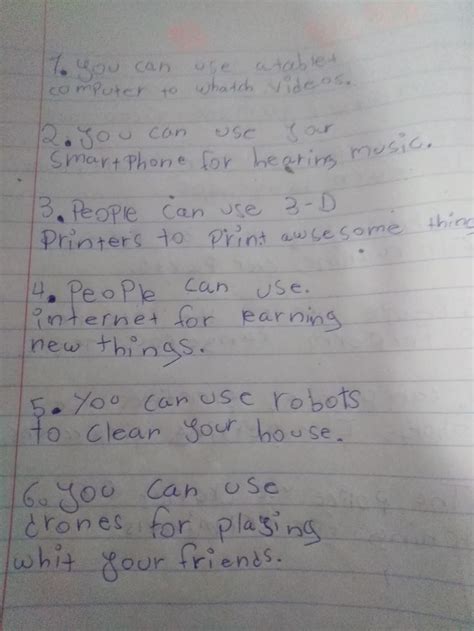 1. you can use a tablet
computer to whatch videos.
2. you can use your
Smartphone for hearing music.
3. People can use 3-D
Printers to print awsesome thing
4. People can use.
internet for earning
new things.
5. You can use robots
to clean your house.
6. you can use
drones for playing
whit your friends.